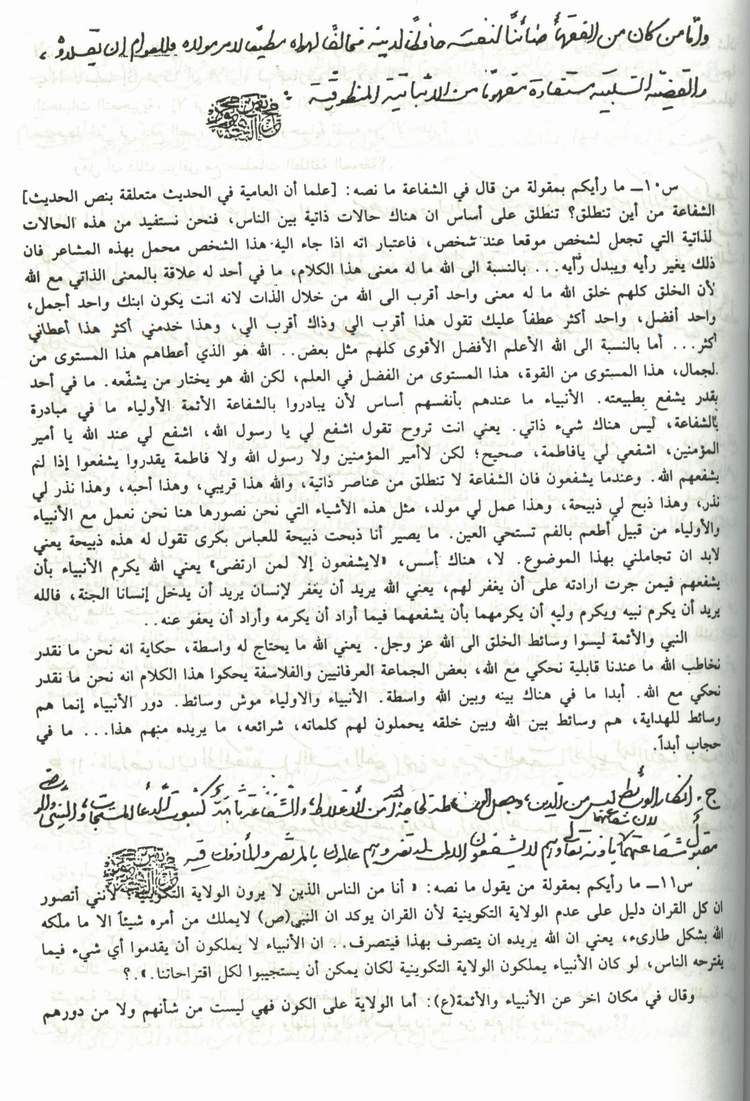 وأما من كان من الفقهاء صائناً لنفسه حافظاً لدينه مخالفاً لهواه مطيعاً لأمر مولاه فللعوام ان يقلدوه،
والقضية السلبية مستفادة مفهوماً من الاثباتية المنطوقية
س١٠ــ ما رأيكم بمقولة من قال في الشفاعة ما نصه: [علما أن العامية في الحديث متعلقة بنص الحديث]
الشفاعة من أين تنطلق؟ تنطلق على أساس ان هناك حالات ذاتية بين الناس، فنحن نستفيد من هذه الحالات
لذاتية التي تجعل لشخص موقعا عند شخص، فاعتبار انه اذا جاء اليه هذا الشخص محمل بهذه المشاعر فان
ذلك يغير رأيه ويبدل رأيه... بالنسبة الى الله ما له معنى هذا الكلام، ما في أحد له علاقة بالمعنى الذاتي مع الله
لأن الخلق كلهم خلق الله ما له معنى واحد أقرب الى الله من خلال الذات لانه انت يكون ابنك واحد أجمل،
واحد أفضل، واحد أكثر عطفاً عليك تقول هذا أقرب الي وذاك أقرب الي، وهذا خدمني أكثر هذا أعطاني
أكثر... أما بالنسبة الى الله الأعلم الأفضل الأقوى كلهم مثل بعض.. الله هو الذي أعطاهم هذا المستوى من
لجمال، هذا المستوى من القوة، هذا المستوى من الفضل في العلم، لكن الله هو يختار من يشفّعه. ما في أحد
بقدر يشفع بطبيعته. الأنبياء ما عندهم بأنفسهم أساس لأن يبادروا بالشفاعة الأئمة الأولياء ما في مبادرة
بالشفاعة، ليس هناك شيء ذاتي. يعني انت تروح تقول اشفع لي يا رسول الله، اشفع لي عند الله يا أمير
المؤمنين، اشفعي لي يافاطمة، صحيح؛ لكن لاأمير المؤمنين ولا رسول الله ولا فاطمة يقدروا يشفعوا إذا لم
يشفعهم الله. وعندما يشفعون فان الشفاعة لا تنطلق من عناصر ذاتية، والله هذا قريبي، وهذا أحبه، وهذا نذر لي
نذر، وهذا ذبح لي ذبيحة، وهذا عمل لي مولد، مثل هذه الأشياء التي نحن نصورها هنا نحن نعمل مع الأنبياء
والأولياء من قبيل أطعم بالفم تستحي العين. ما يصير أنا ذبحت ذبيحة للعباس بكرى تقول له هذه ذبيحة يعني
لابد ان تجاملني بهذا الموضوع. لا، هناك أسس، «لايشفعون إلا لمن ارتضى» يعني الله يكرم الأنبياء بأن
يشفعهم فيمن جرت ارادته على أن يغفر لهم، يعني الله يريد أن يغفر لإنسان يريد أن يدخل إنسانا الجنة، فالله
يريد أن يكرم نبيه ويكرم وليه أن يكرمهما بأن يشفعهما فيما أراد أن يكرمه وأراد أن يعفو عنه..
النبي والأئمة ليسوا وسائط الخلق الى الله عز وجل. يعني الله ما يحتاج له واسطة، حكاية انه نحن ما نقدر
نخاطب الله ما عندنا قابلية نحكي مع الله، بعض الجماعة العرفانيين والفلاسفة يحكوا هذا الكلام انه نحن ما نقدر
نحكي مع الله. أبدا ما في هناك بينه وبين الله واسطة. الأنبياء والاولياء موش وسائط. دور الأنبياء إنما هم
وسائط للهداية، هم وسائط بين الله وبين خلقه يحملون لهم كلماته، شرائعه، ما يريده منهم هذا... ما في
حجاب أبداً.
ج ـ انكار الوسائط ليس من الدين،
س١١ــ ما رأيكم بمقولة من يقول ما نصه: « أنا من الناس الذين لا يرون الولاية التكوينية؟ لأنني أتصور
ان كل القران دليل على عدم الولاية التكوينية لأن القران يوكد ان النبي(ص) لايملك من أمره شيئاً الا ما ملكه
الله بشكل طارىء، يعني ان الله يريده ان يتصرف بهذا فيتصرف... ان الأنبياء لا يملكون أن يقدموا أي شيء فيما
يفترحه الناس، لو كان الأنبياء يملكون الولاية التكوينية لكان يمكن أن يستجيبوا لكل اقتراحاتنا.».؟
وقال في مكان اخر عن الأنبياء والأئمة(ع): أما الولاية على الكون فهي ليست من شأنهم ولا من دورهم